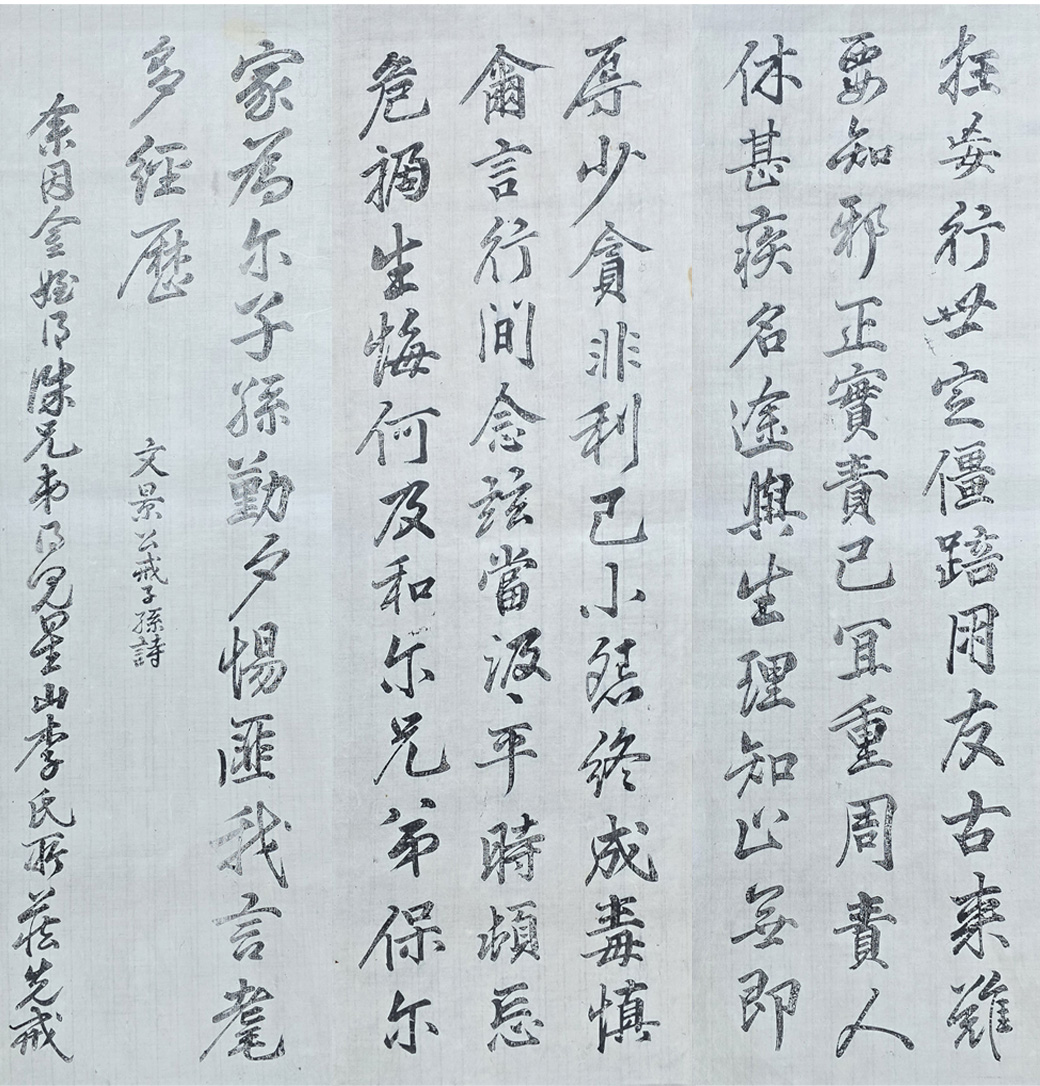 狂妄行世定僵踣用友古來難
要知邪正實責己宜重周責人
休甚疾名途與生理知止無即
辱少貪非利己小怨終成毒慎
爾言行間念玆當汲〻平時頻忘
危禍生悔何及和尔兄弟保尔
家為尔子孫勤夕惕匪我言耄
多經歷
文景公戒子孫詩
余因金姪得洙兄弟得見星山李氏所藏先戒